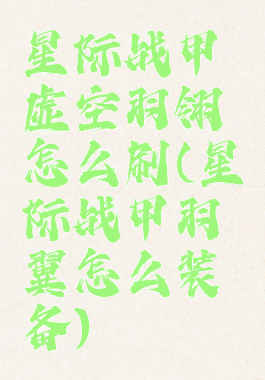 星际战甲
虚空羽翎
怎么刷(星
际战甲羽
翼怎么装
备)